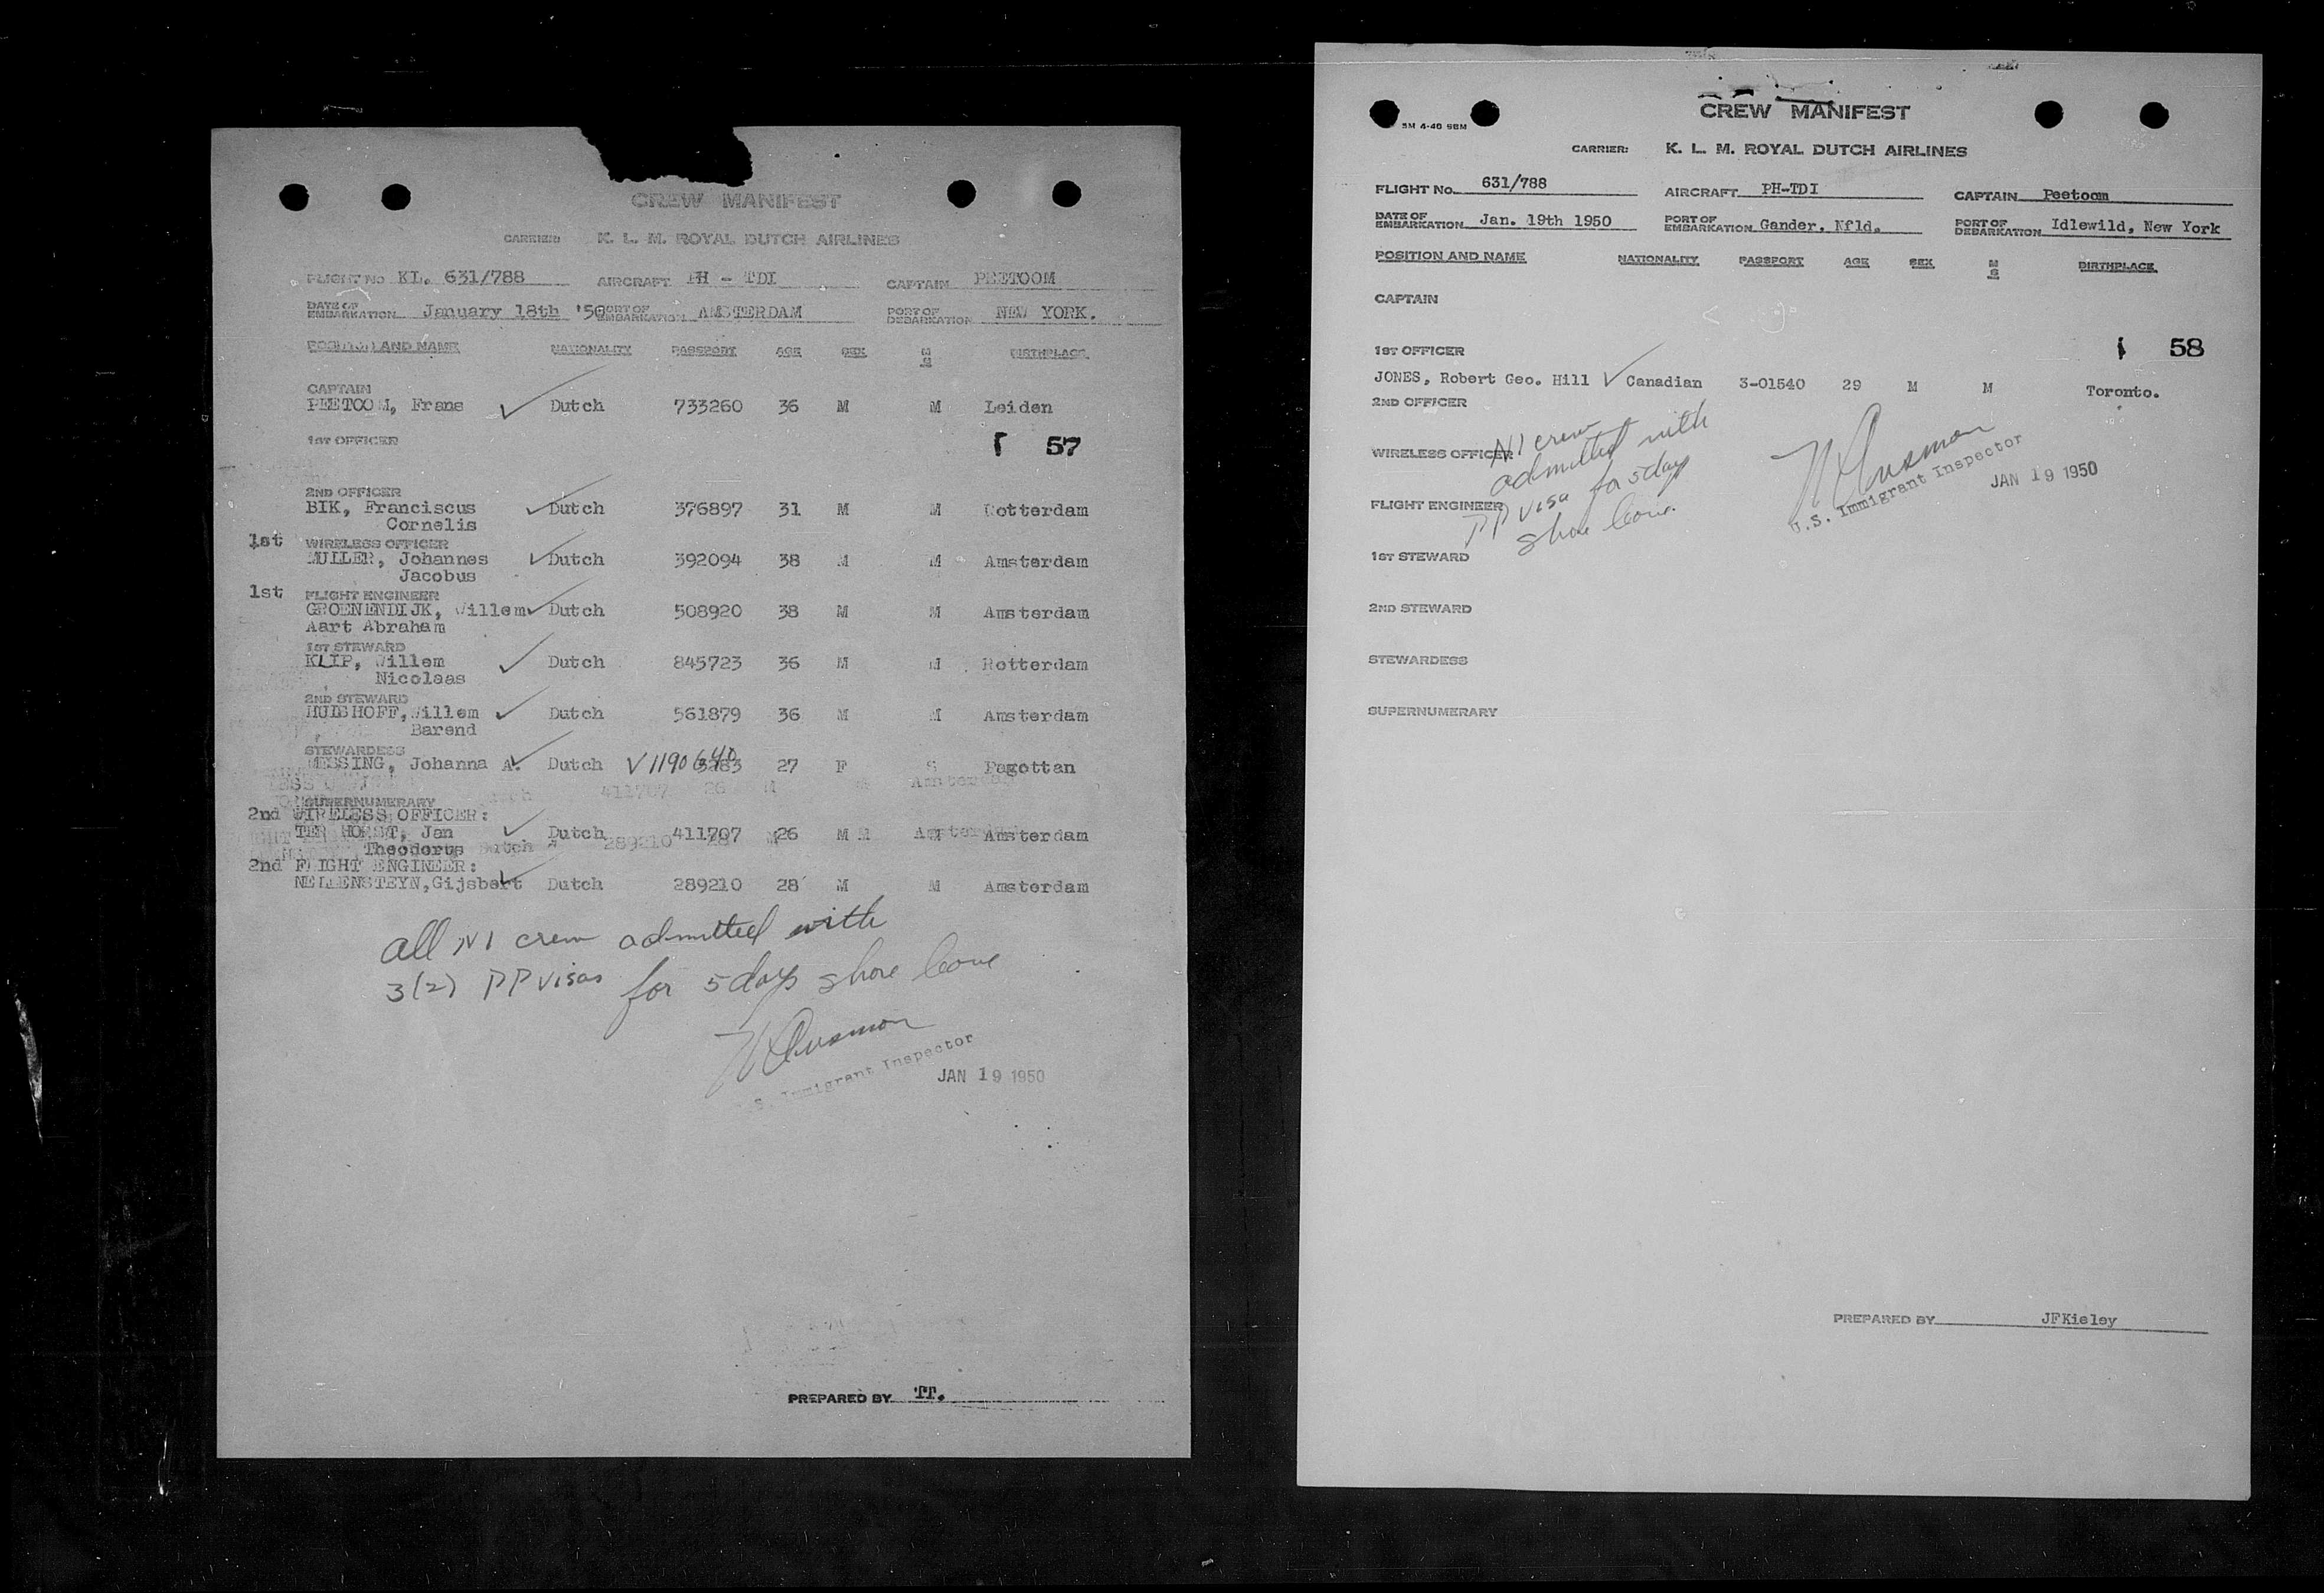 CREW MANIFEST
CARRIER: K. L. M. ROYAL DUTCH AIRLINES
FLIGHT NO KL. 631/788 AIRCRAFT PH - TDI CAPTAIN PEETOOM
DATE OF EMBARKATION January 18th '50 PORT OF EMBARKATION AMSTERDAM PORT OF DEBARKATION NEW YORK.
POSITION AND NAME NATIONALITY PASSPORT AGE SEX M S BIRTHPLACE
CAPTAIN
PEETOOM, Frans ✓ Dutch 733260 36 M M Leiden
1ST OFFICER
57
2ND OFFICER
BIK, Franciscus ✓ Dutch 376897 31 M M Rotterdam
Cornelis
1st WIRELESS OFFICER
MULLER, Johannes ✓ Dutch 392094 38 M M Amsterdam
Jacobus
1st FLIGHT ENGINEER
GROENENDIJK, Willem ✓ Dutch 508920 38 M M Amsterdam
Aart Abraham
1ST STEWARD
KLIP, Willem ✓ Dutch 845723 36 M M Rotterdam
Nicolaas
2ND STEWARD
Willem ✓ Dutch 561879 36 M M Amsterdam
Barend
STEWARDESS
Johanna A. ✓ Dutch V1190640 3283 27 F S Pagottan
411707 26 M Amsterdam
SUPERNUMERARY
2nd WIRELESS OFFICER:
TER HORST, Jan ✓ Dutch 411707 26 M M Amsterdam
Theodorus Dutch 289210 28
2nd FLIGHT ENGINEER:
NELLENSTEYN, Gijsbert ✓ Dutch 289210 28 M M Amsterdam
all NI crew admitted with
3(2) PP visas for 5 days shore leave
S. Immigrant Inspector
JAN 19 1950
PREPARED BY TT.
5M 4-46 SBM
CREW MANIFEST
CARRIER: K. L. M. ROYAL DUTCH AIRLINES
FLIGHT No. 631/788 AIRCRAFT PH-TDI CAPTAIN Peetoom
DATE OF EMBARKATION Jan. 19th 1950 PORT OF EMBARKATION Gander, Nfld. PORT OF DEBARKATION Idlewild, New York
POSITION AND NAME NATIONALITY PASSPORT AGE SEX M S BIRTHPLACE
CAPTAIN
1ST OFFICER
58
JONES, Robert Geo. Hill ✓ Canadian 3-01540 29 M M Toronto.
2ND OFFICER
WIRELESS OFFICER
NI crew
admitted with
PP visa for 5 day
shore leave.
U.S. Immigrant Inspector
JAN 19 1950
FLIGHT ENGINEER
1ST STEWARD
2ND STEWARD
STEWARDESS
SUPERNUMERARY
PREPARED BY JFKieley